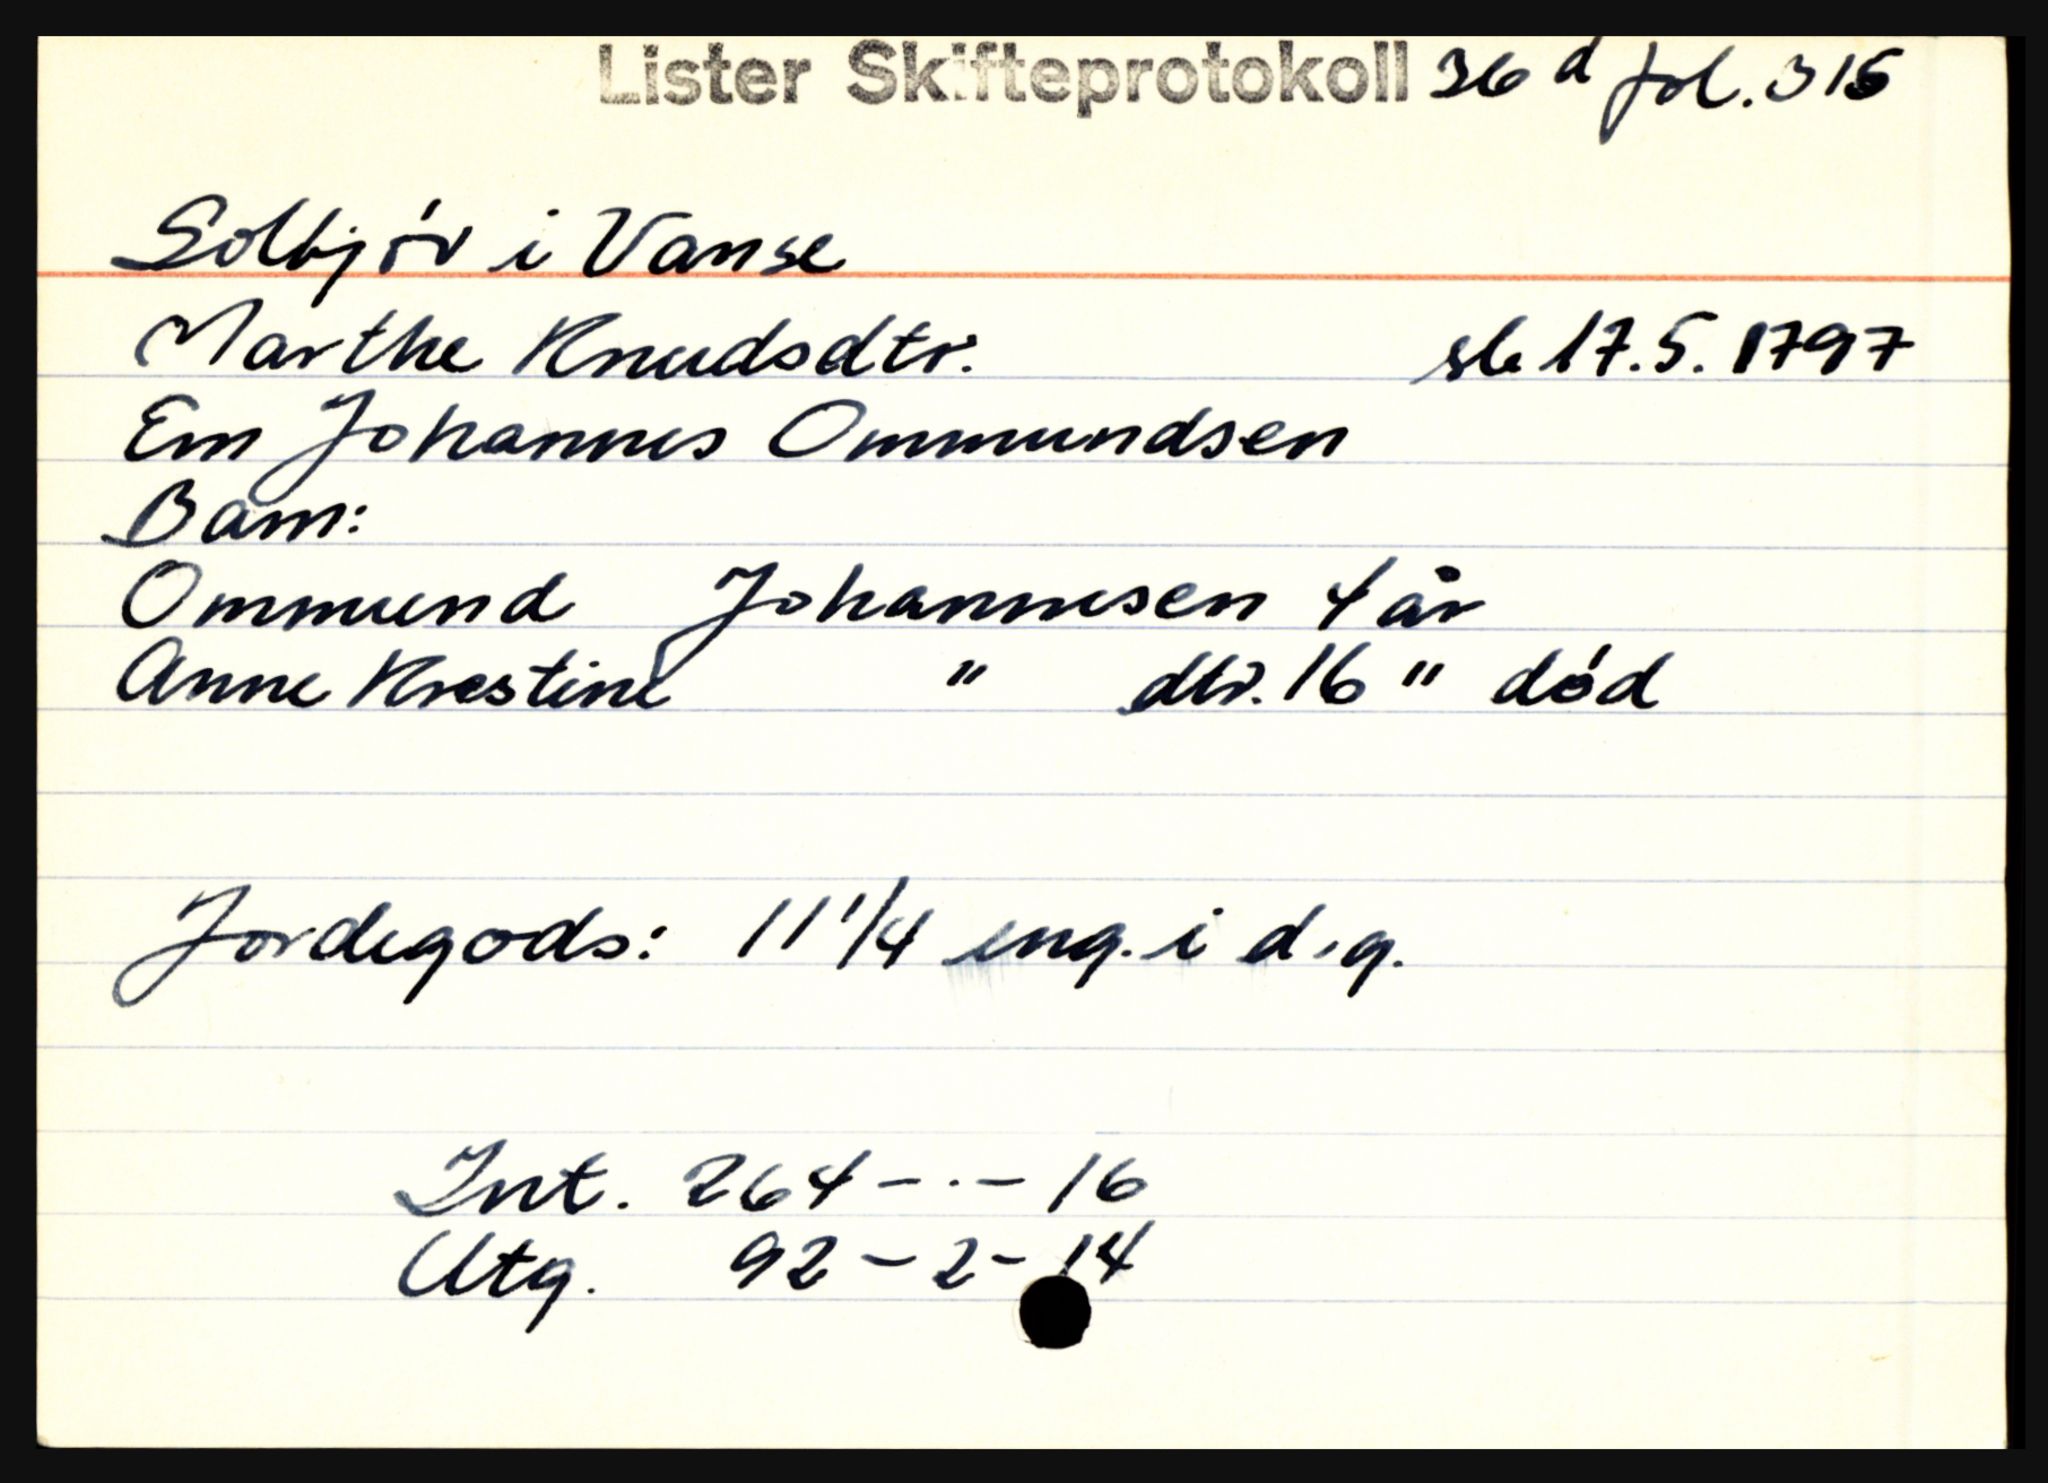 Lister Skifteprotokoll 36 d fol. 315
Solbjør i Vanse
Marthe Knudsdtr. sl. 17.5.1797
Em Johannes Ommundsen
Barn:
Ommund Johannesen 4 år
Anne Krestine " dtr. 16 " død
Jordegods: 11 1/4 eng. i d.g.
Int. 264 - . - 16
Utg. 92 - 2 - 14